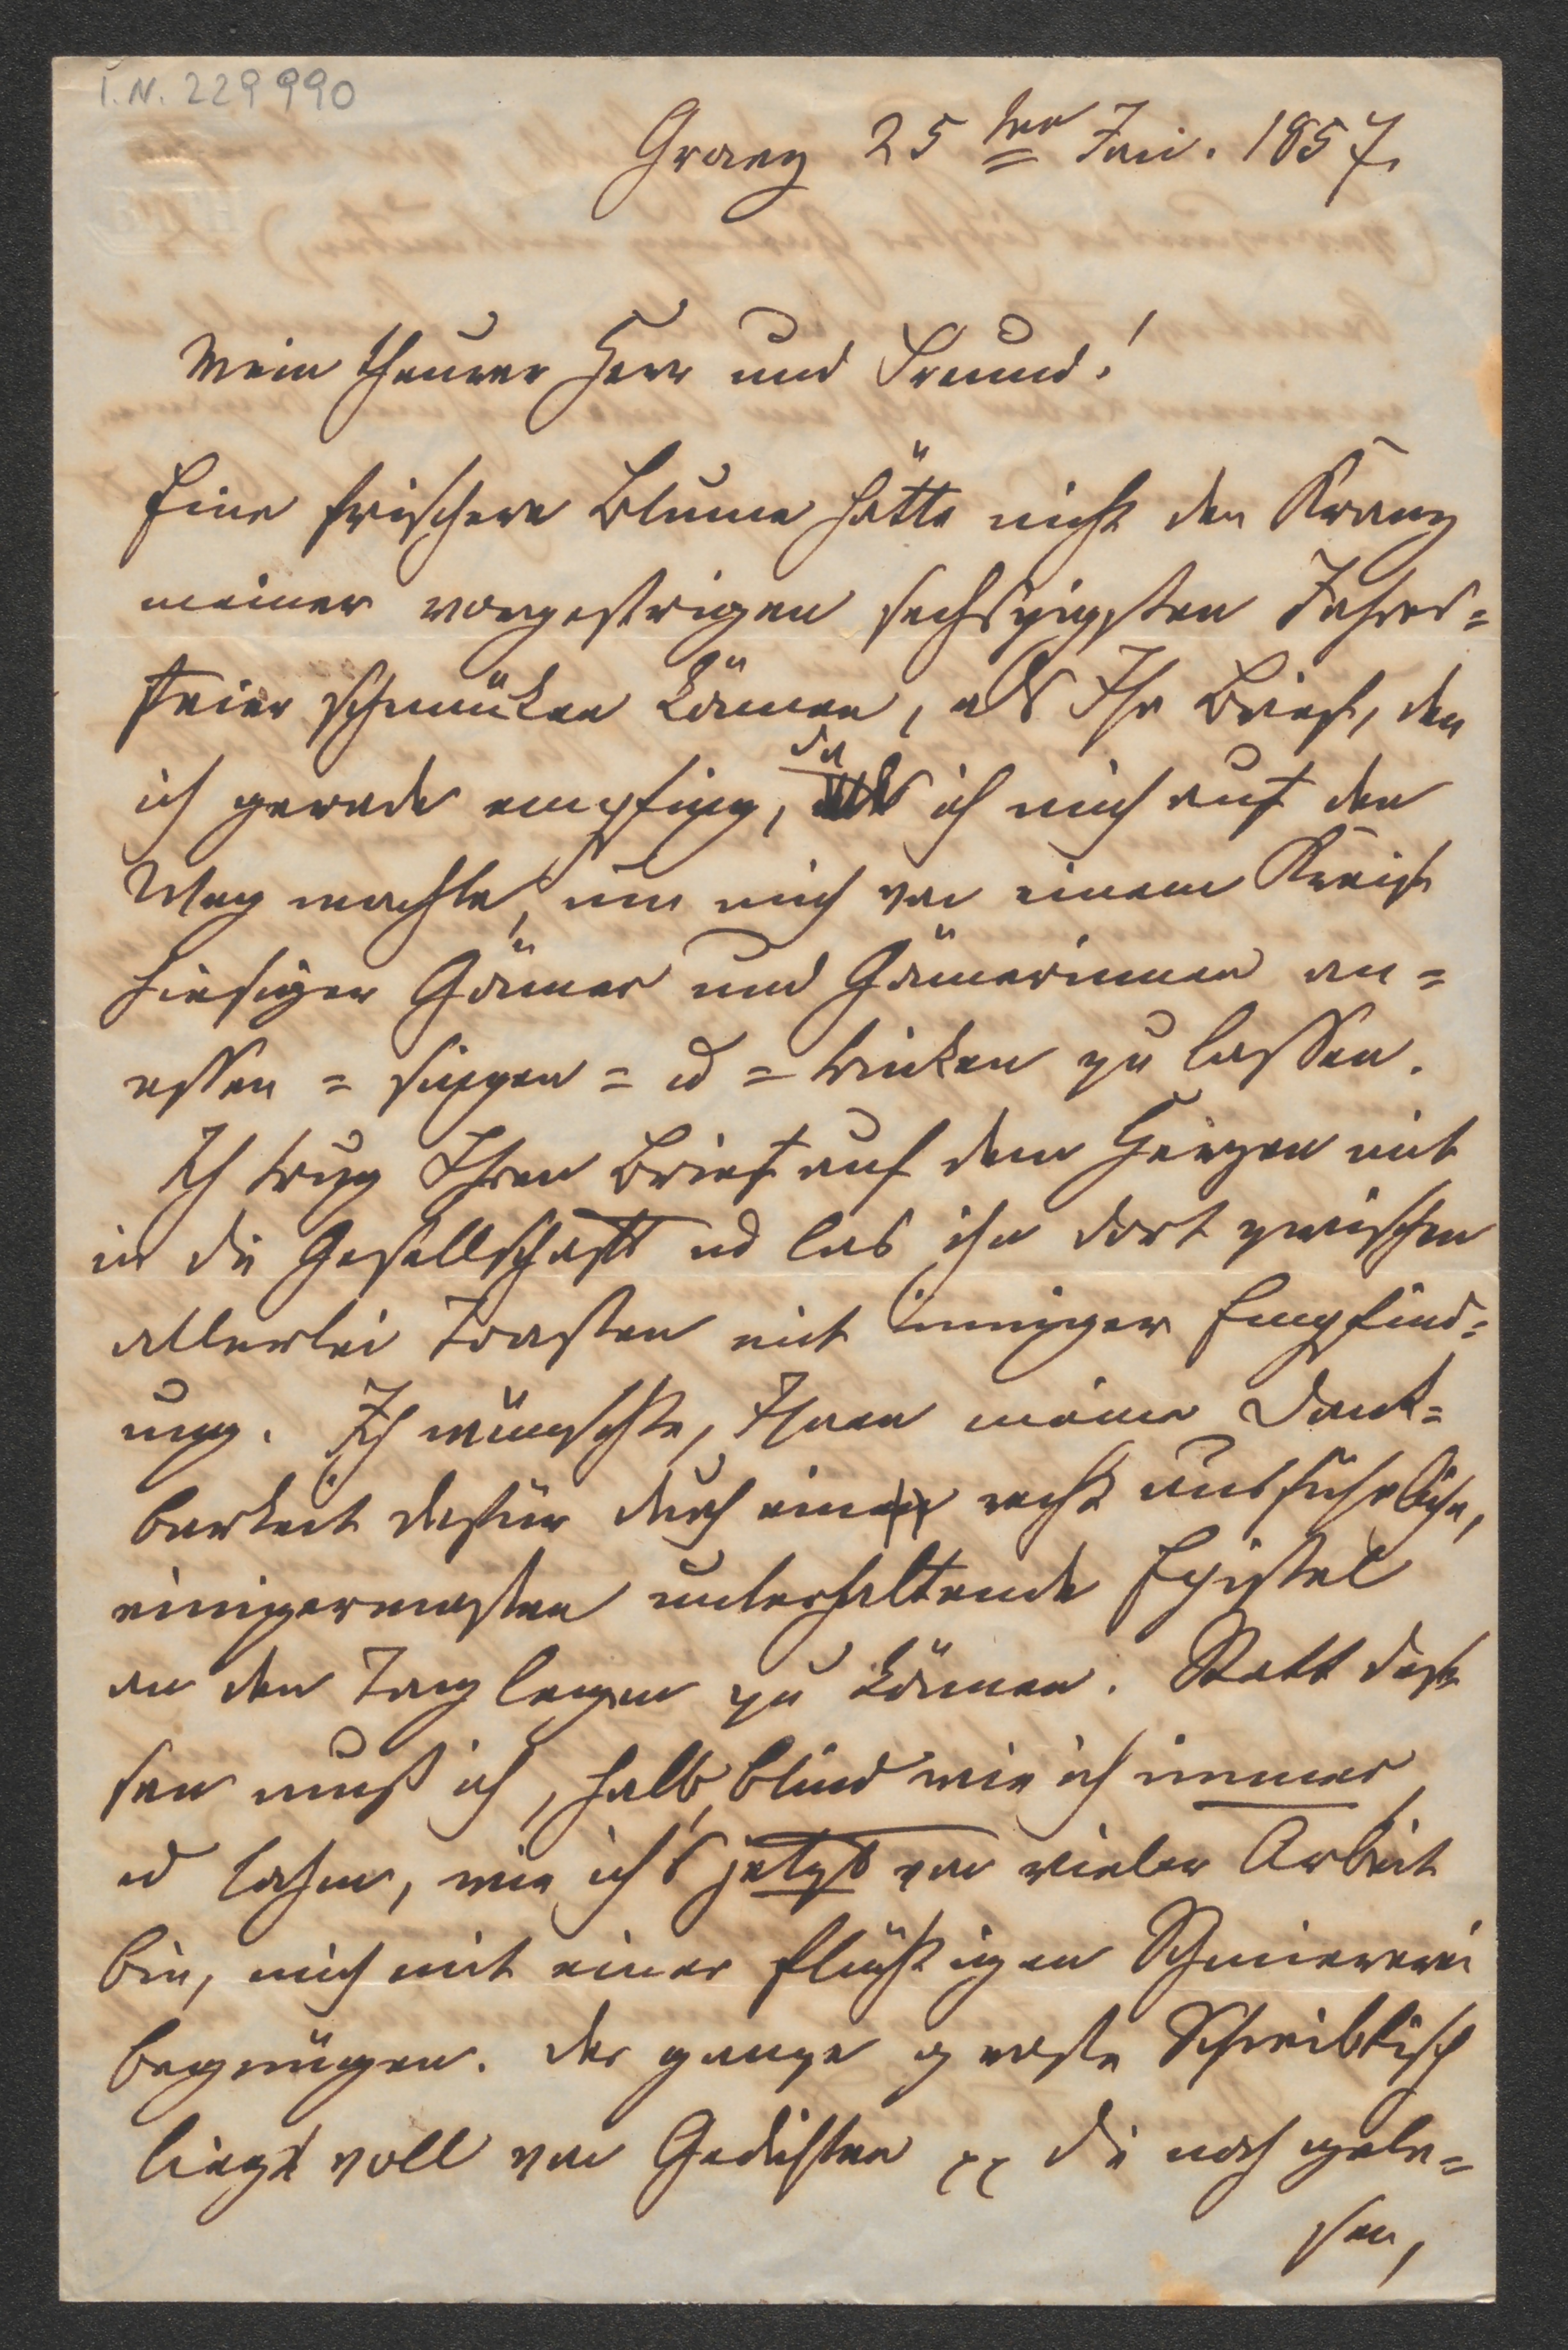 I. N. 229990
Graez 25ten Jäñ. 1857.
Mein theurer Herr und Freund!
Eine frischere Blume hätte nicht den Kranz
meiner vorgestrigen sechszigsten Jahres=
feier schmüken können, als Ihr Brief, den
ich gerade empfing, da ich mich auf den
Weg machte, um mich von einem Kreise
hiesiger Göñer und Göñerinnen an=
essen = singen = ud = trinken zu lassen.
Ich trug Ihren Brief auf dem Herzen mit
in die Gesellschaft ud las ihn dort zwischen
allerlei Toasten mit inniger Empfind=
ung. Ich wünschte, Ihnen meine Dank=
barkeit dafür durch eine recht ausführliche,
einigermaßen unterhaltende Epistel
an den Tag legen zu köñen. Statt deß=
sen muß ich, halb blind wie ich immer,
ud lahm, wie ich's jetzt von vieler Arbeit
bin, mich mit einer flüchtigen Schmiererei
begnügen. Der ganze große Schreibtisch
liegt voll von Gedichten pp die noch gele=
sen,